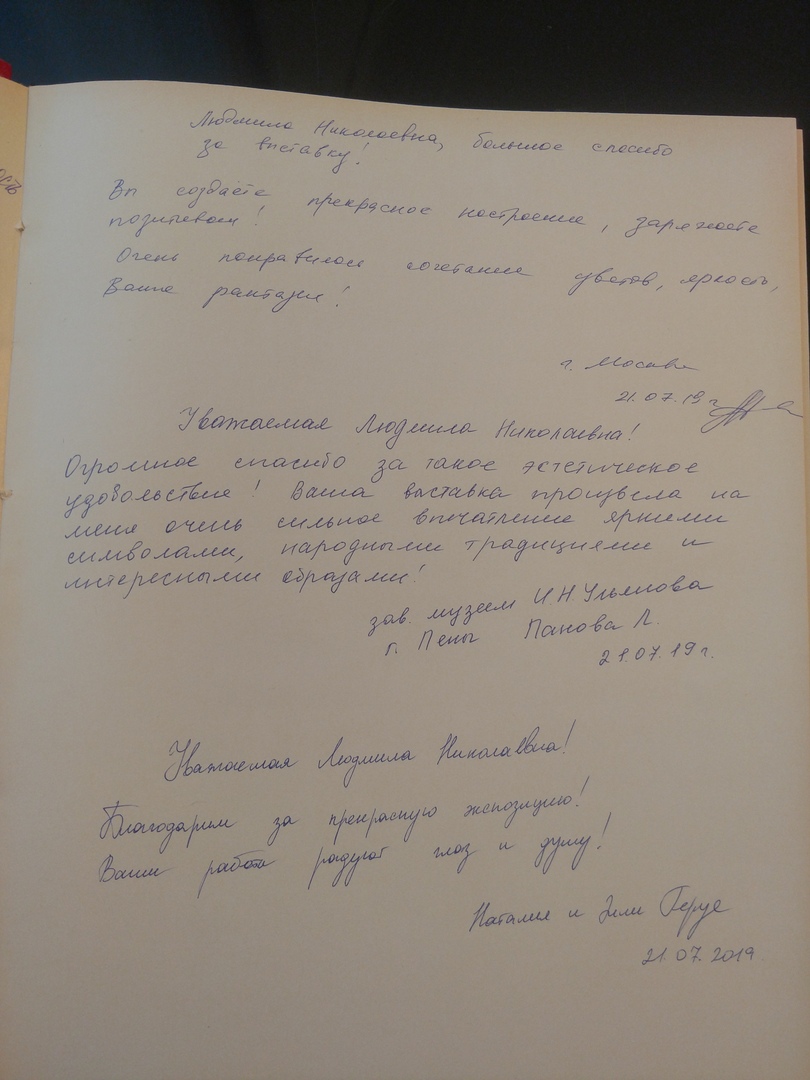 Людмила Николаевна, большое спасибо
за выставку!
Вы создаёте прекрасное настроение, заряжаете
позитивом!
Очень понравилось сочетание цветов, яркость,
Ваше фантазии!
г. Москва
21.07.19 г.
Уважаемая Людмила Николаевна!
Огромное спасибо за такое эстетическое
удовольствие! Ваша выставка произвела на
меня очень сильное впечатление яркими
символами, народными традициями и
интересными образами!
зав. музеем И.Н Ульянова
г. Пенза Панова Л.
21.07.19 г.
Уважаемая Людмила Николаевна!
Благодарим за прекрасную экспозицию!
Ваши работы радуют глаз и душу!
Наталия и
21.07.2019